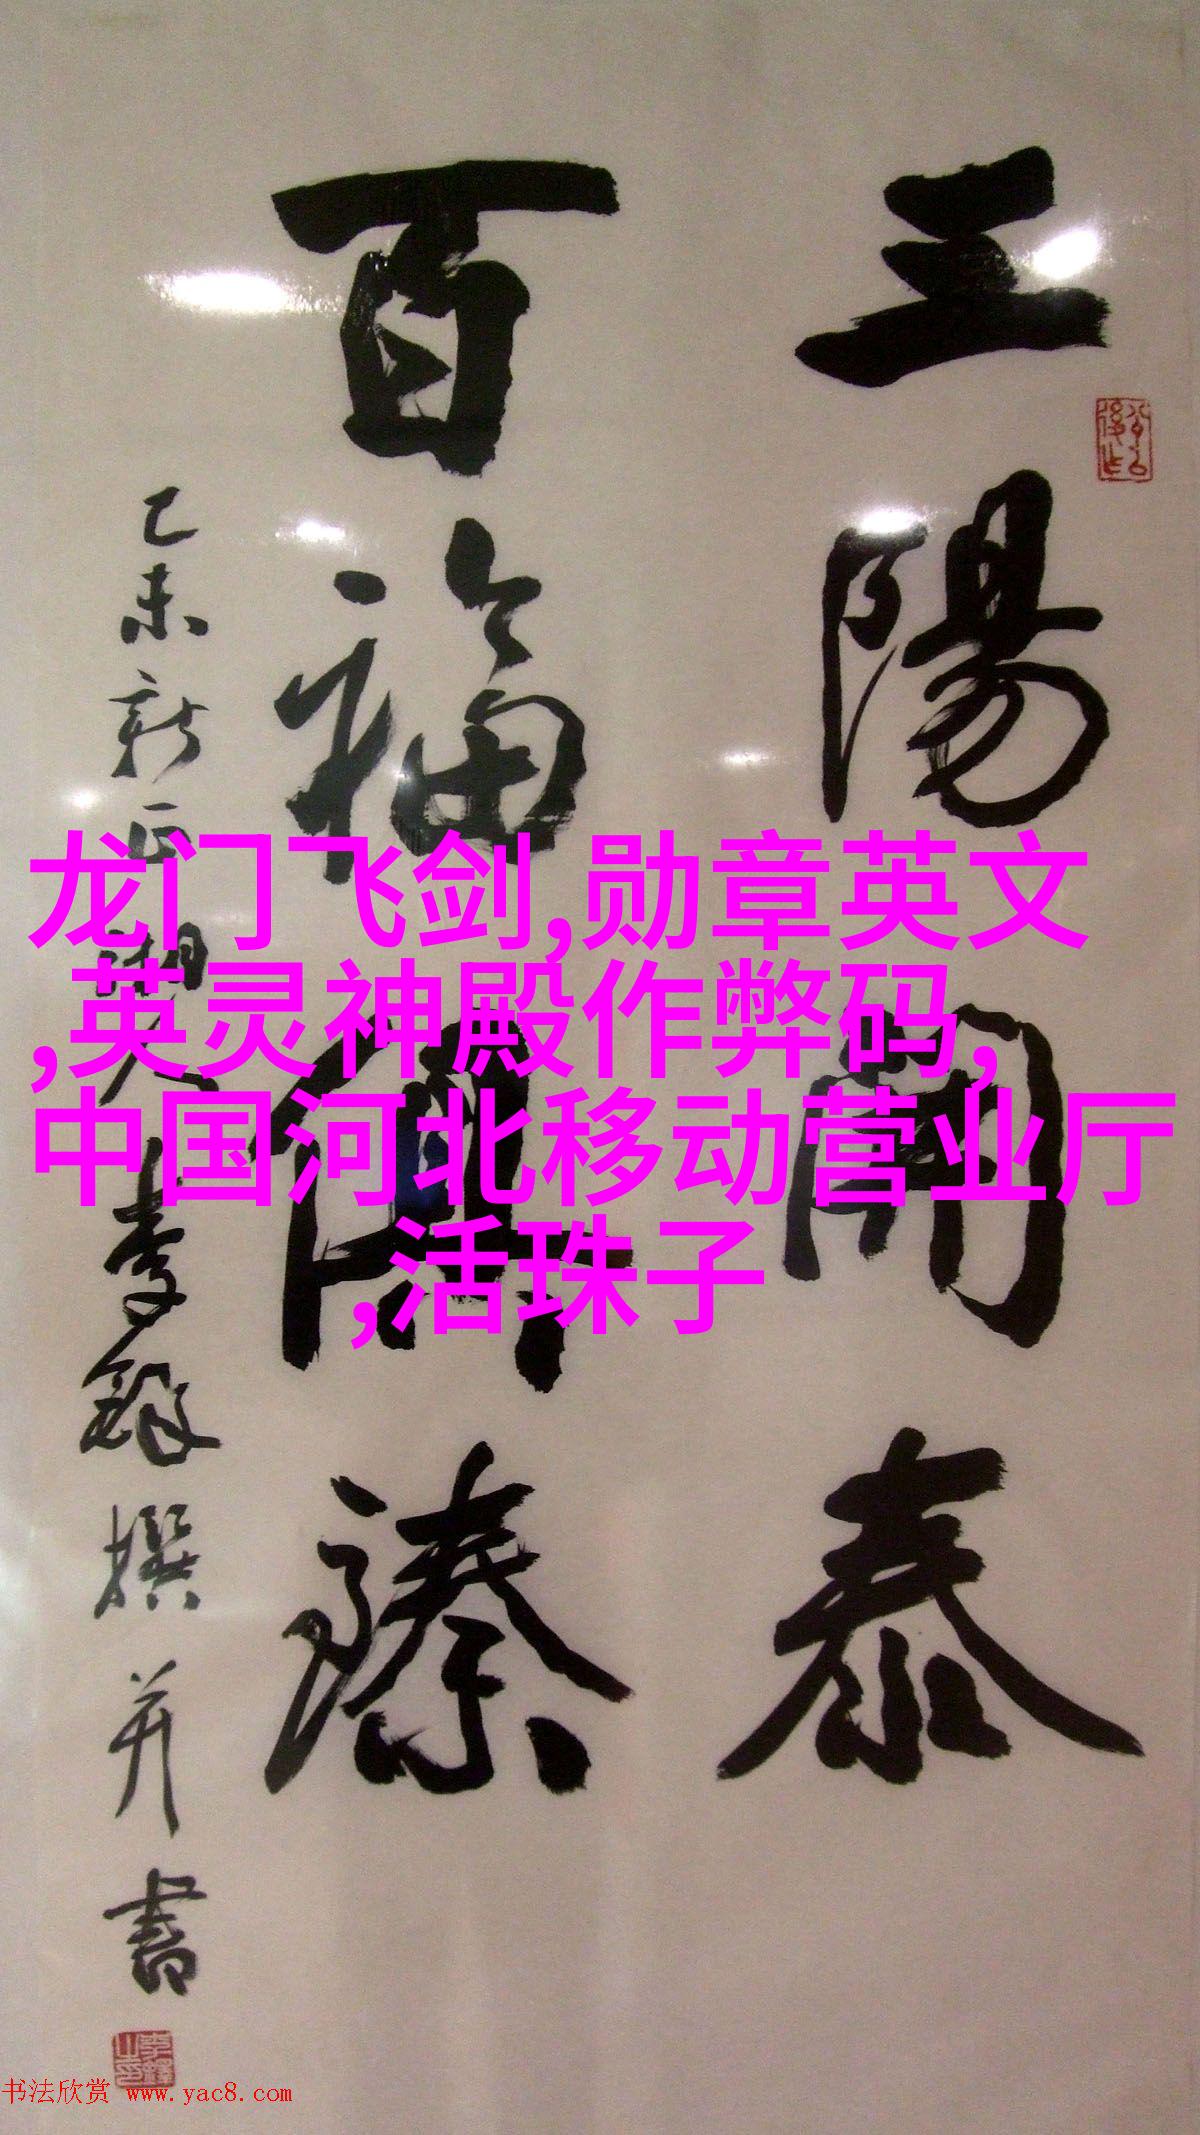 三陽開泰
百福具臻
乙未新正湖人李鐸撰并書
龙门飞剑,勋章英文
,英灵神殿作弊码,
中国河北移动营业厅
,活珠子
书法欣赏 www.yac8.com